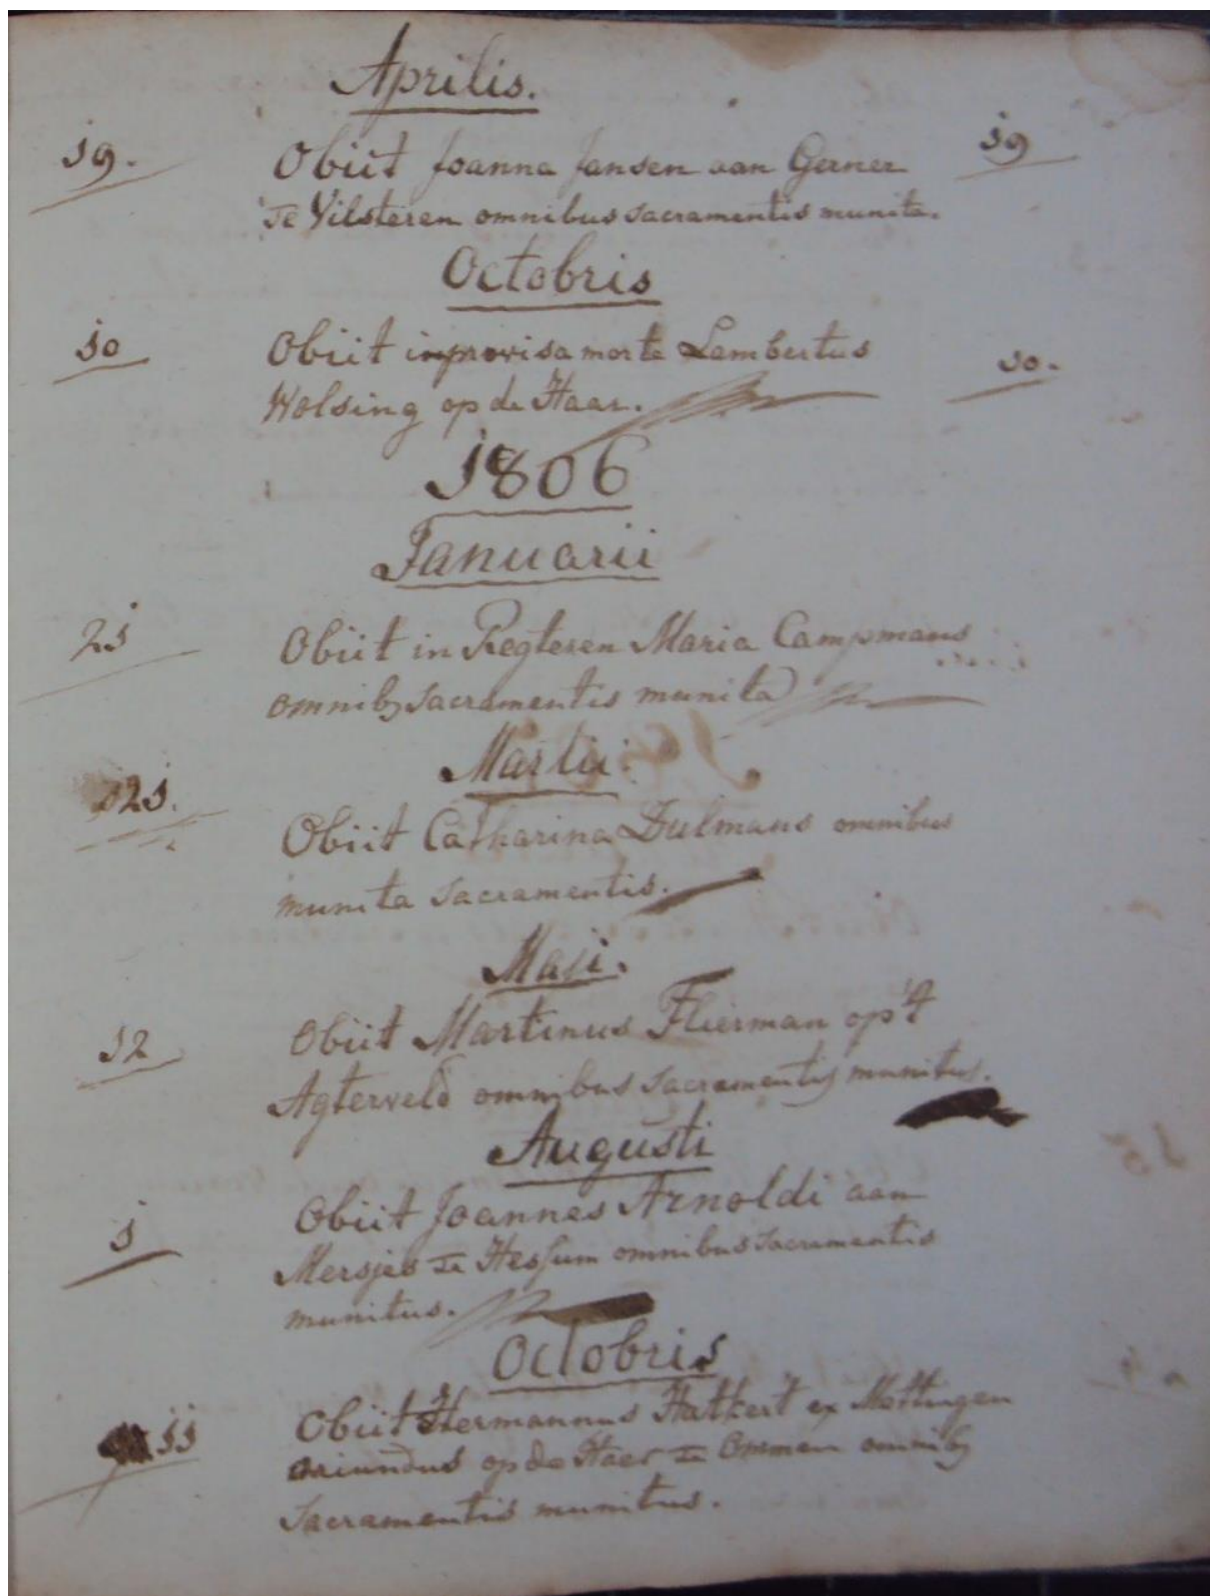 Aprilis.
19. Obiit Joanna Jansen aan Gerner 19
te Vilsteren omnibus sacramentis munita.
Octobris
10 Obiit improvisa morte Lambertus
Wolsing op de Haar. 10.
1806
Januarii
21 Obiit in Regteren Maria Campmans
omnibz sacramentis munita
Martii.
21. Obiit Catharina Dulmans omnibus
munita sacramentis.
Maji.
12 Obiit Martinus Flierman op't
Agterveld omnibus sacramentis munitus.
Augusti
1 Obiit Joannes Arnoldi aan
Mersjes te Hessum omnibus sacramentis
munitus.
Octobris
11 Obiit Hermannus Hatkert ex Mettingen
oriundus op de Haer te Ommen omnibz
sacramentis munitus.